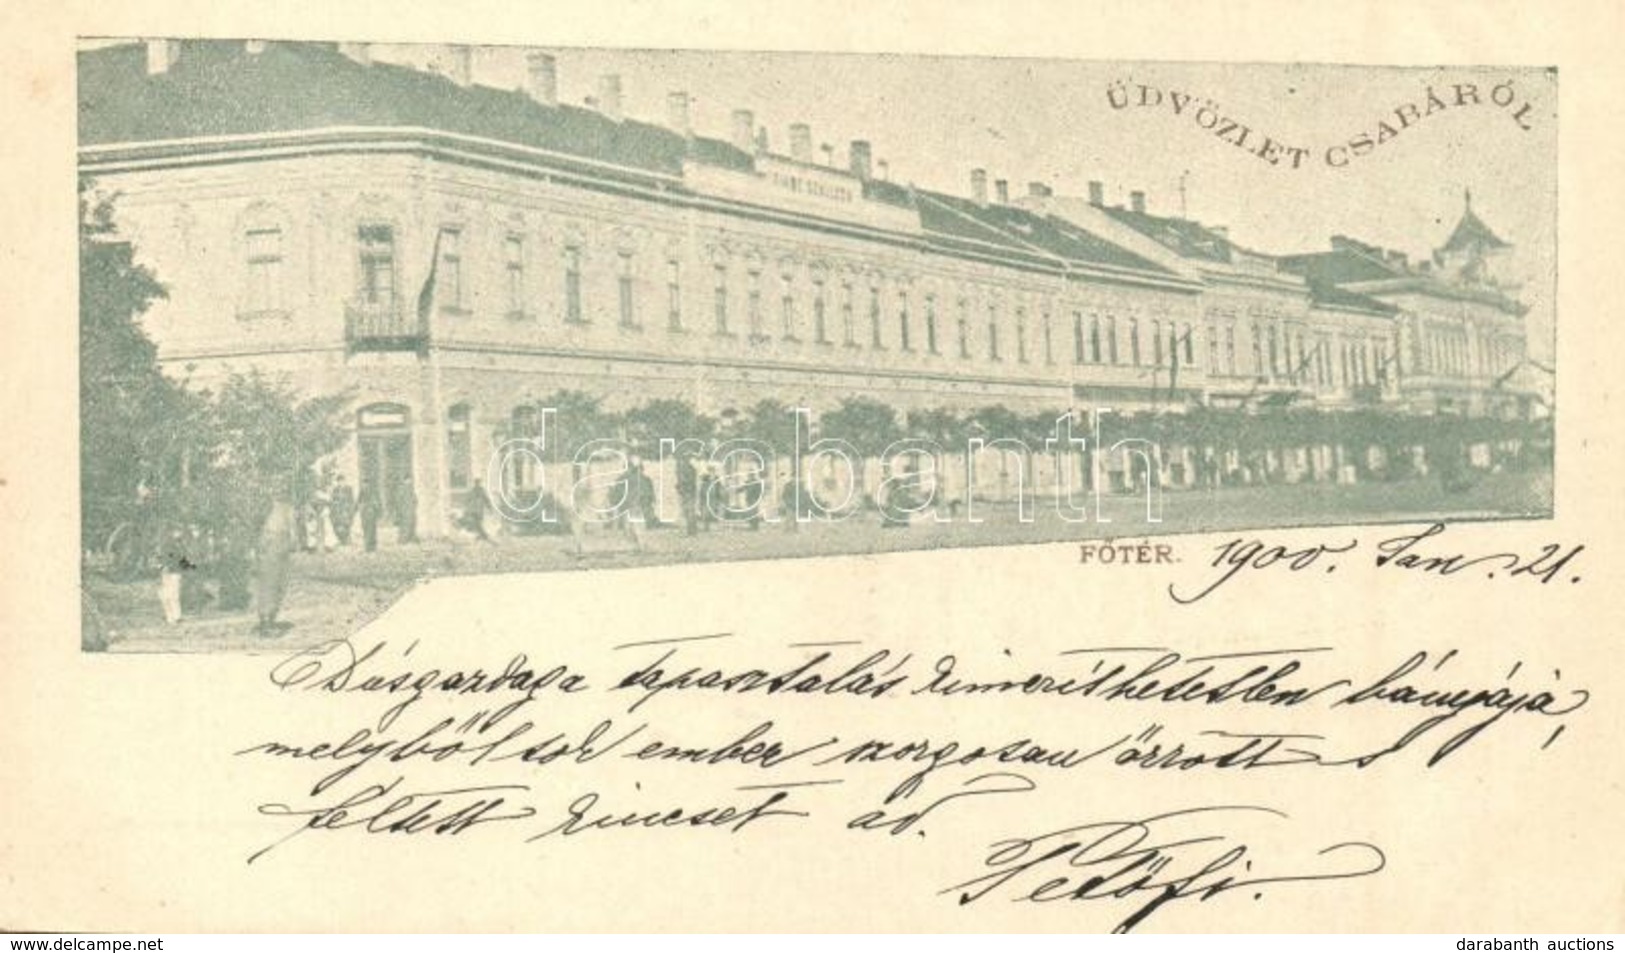 ÜDVÖZLET CSABÁRÓL
darabanth
FŐTÉR. 1900. Jan. 21.
Dúsgazdag a tapasztalás kimeríthetetlen bányája,
melyből sok ember szorgosan őrzött s
féltett kincset ád.
Petőfi.
www.delcampe.net
darabanth auctions